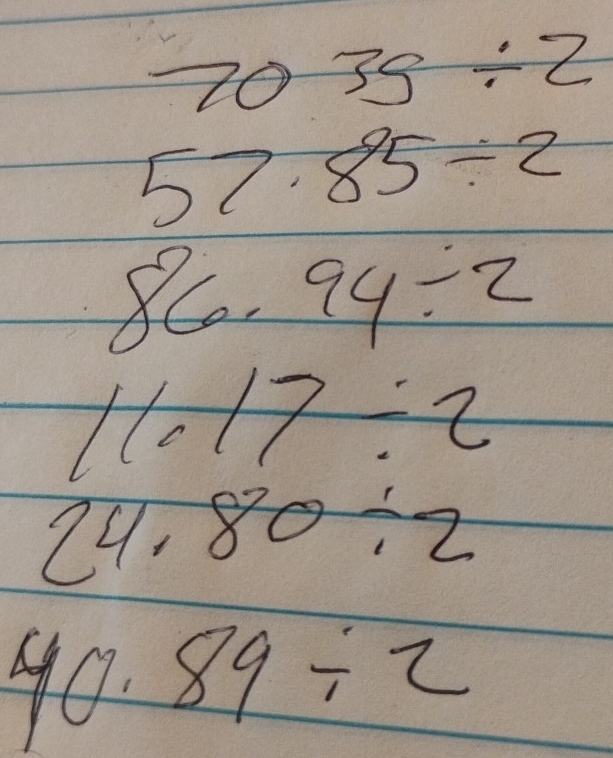 70 39 ÷ 2
57.85 ÷ 2
86.94 ÷ 2
11.17 ÷ 2
24.80 ÷ 2
40.89 ÷ 2